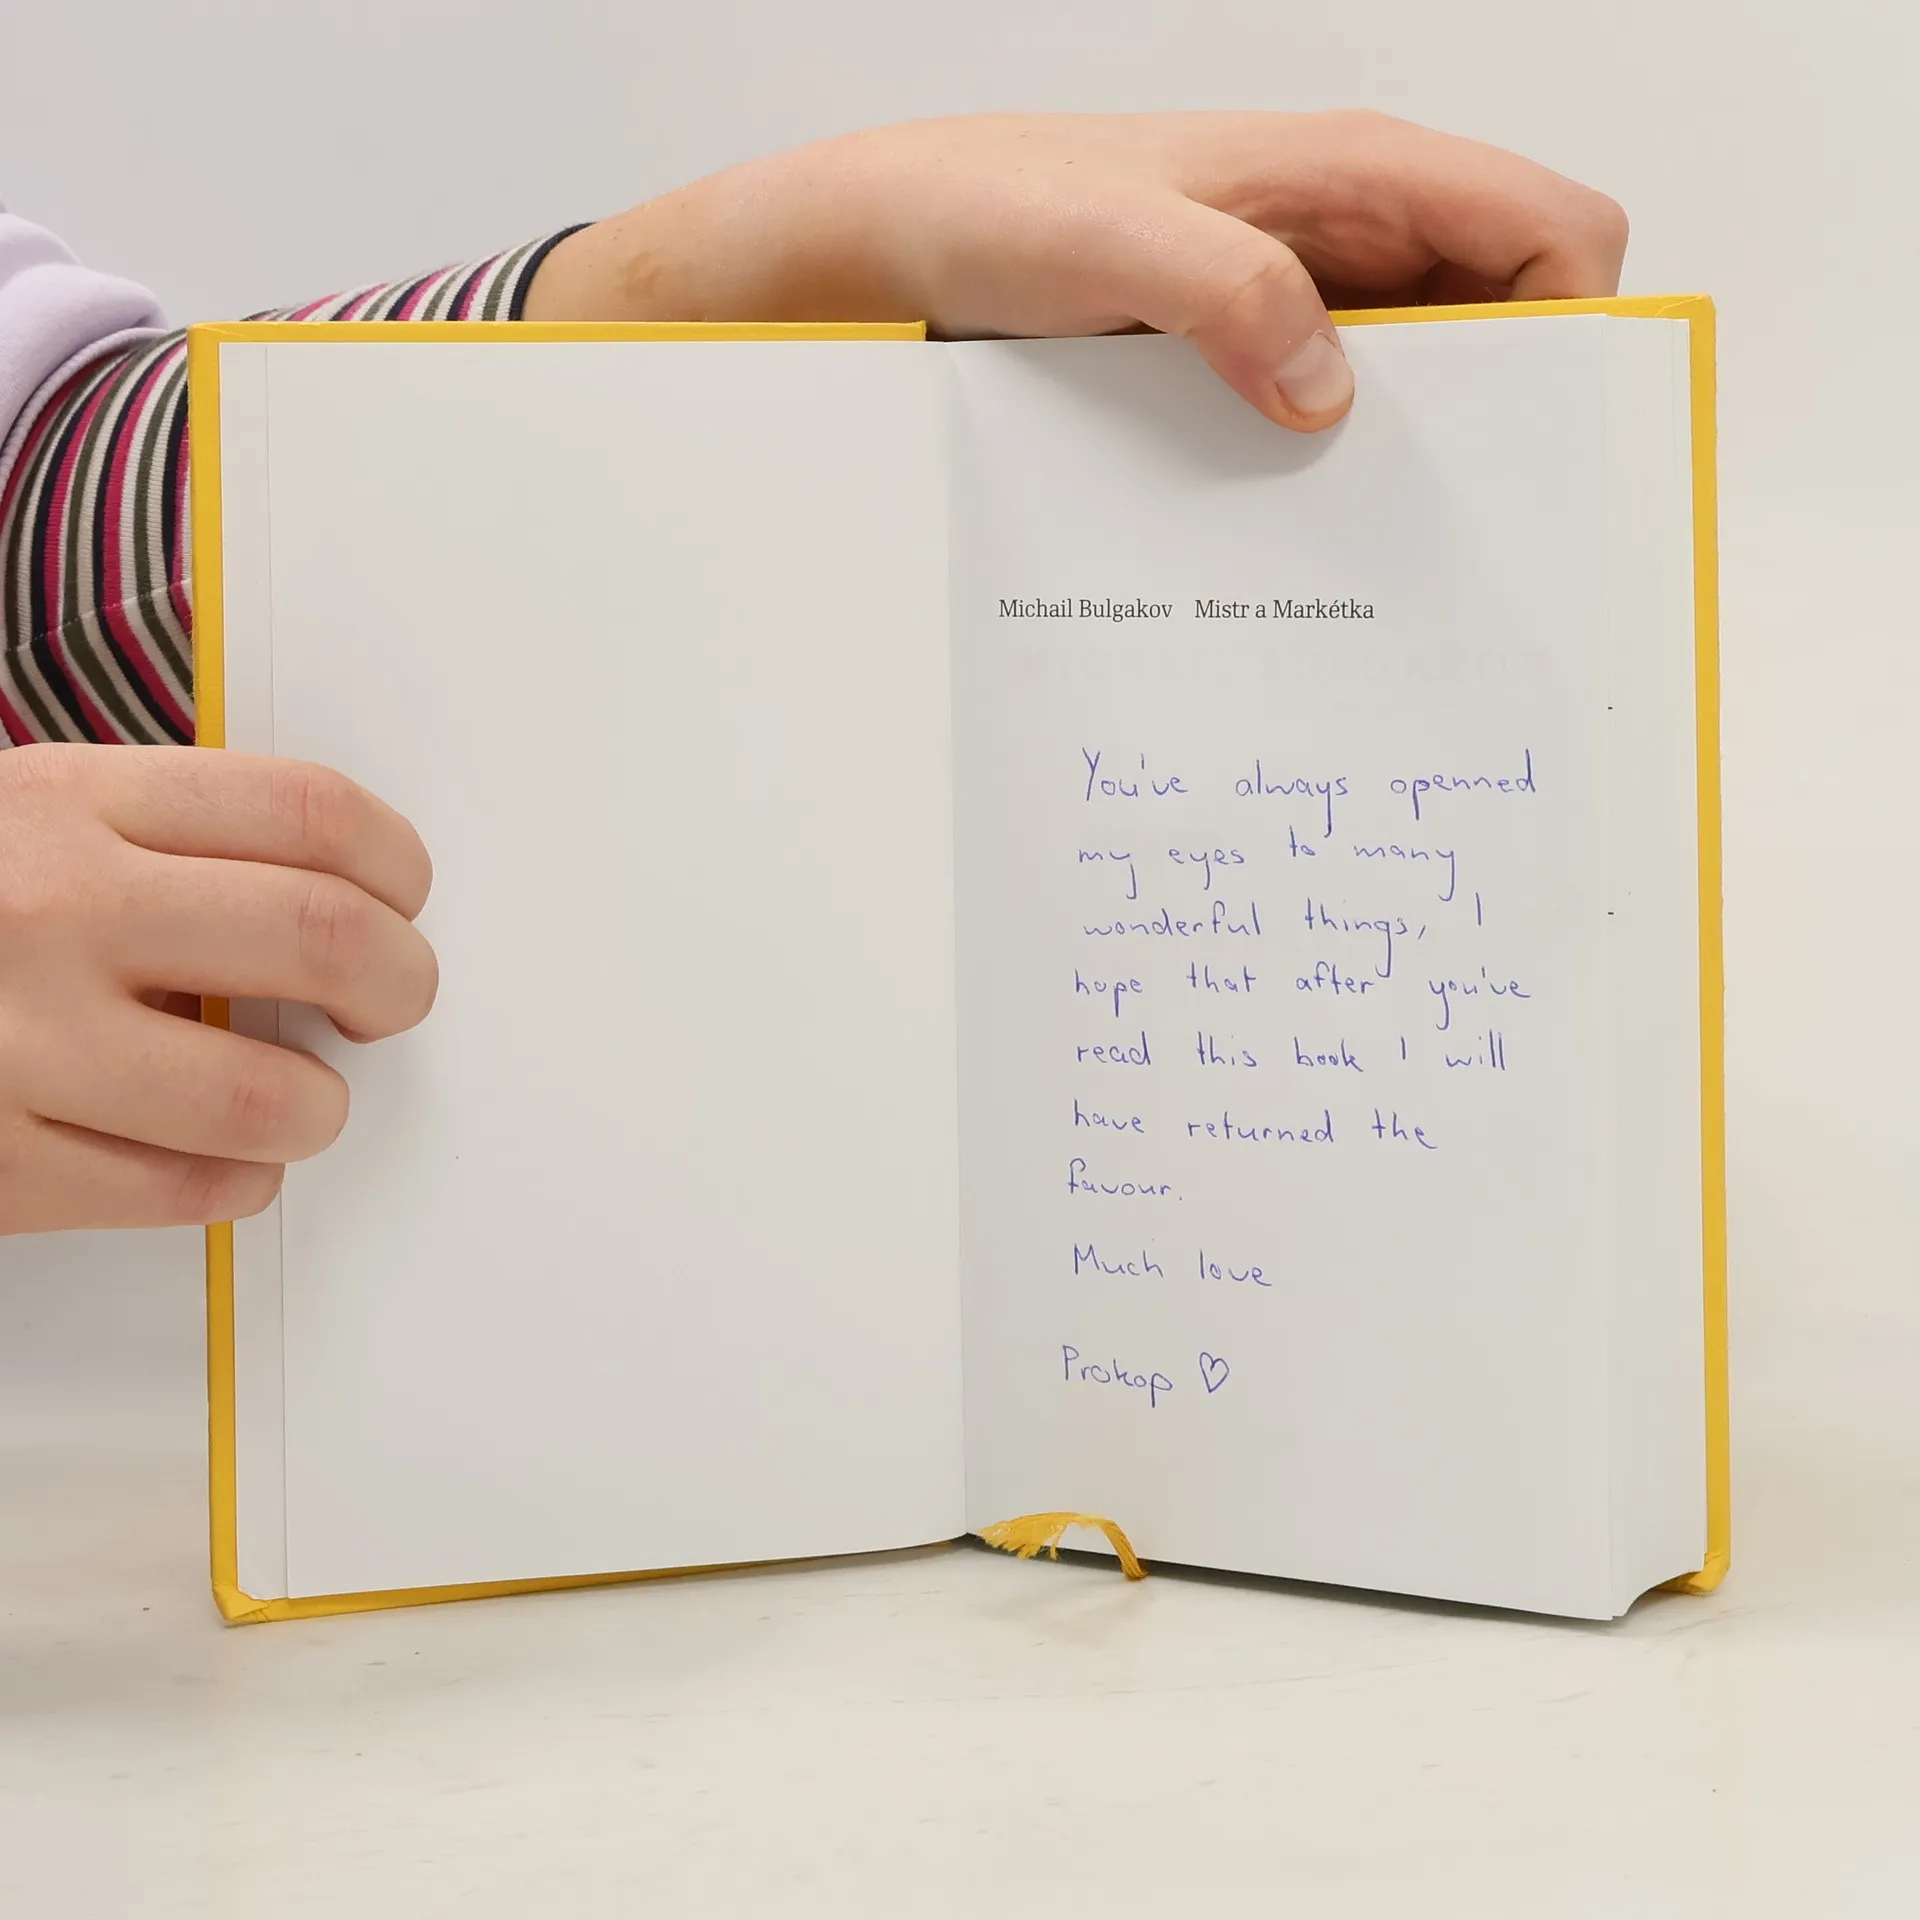 Michail Bulgakov Mistr a Markétka
You've always openned
my eyes to many
wonderful things, I
hope that after you've
read this book I will
have returned the
favour.
Much love
Prokop ♡